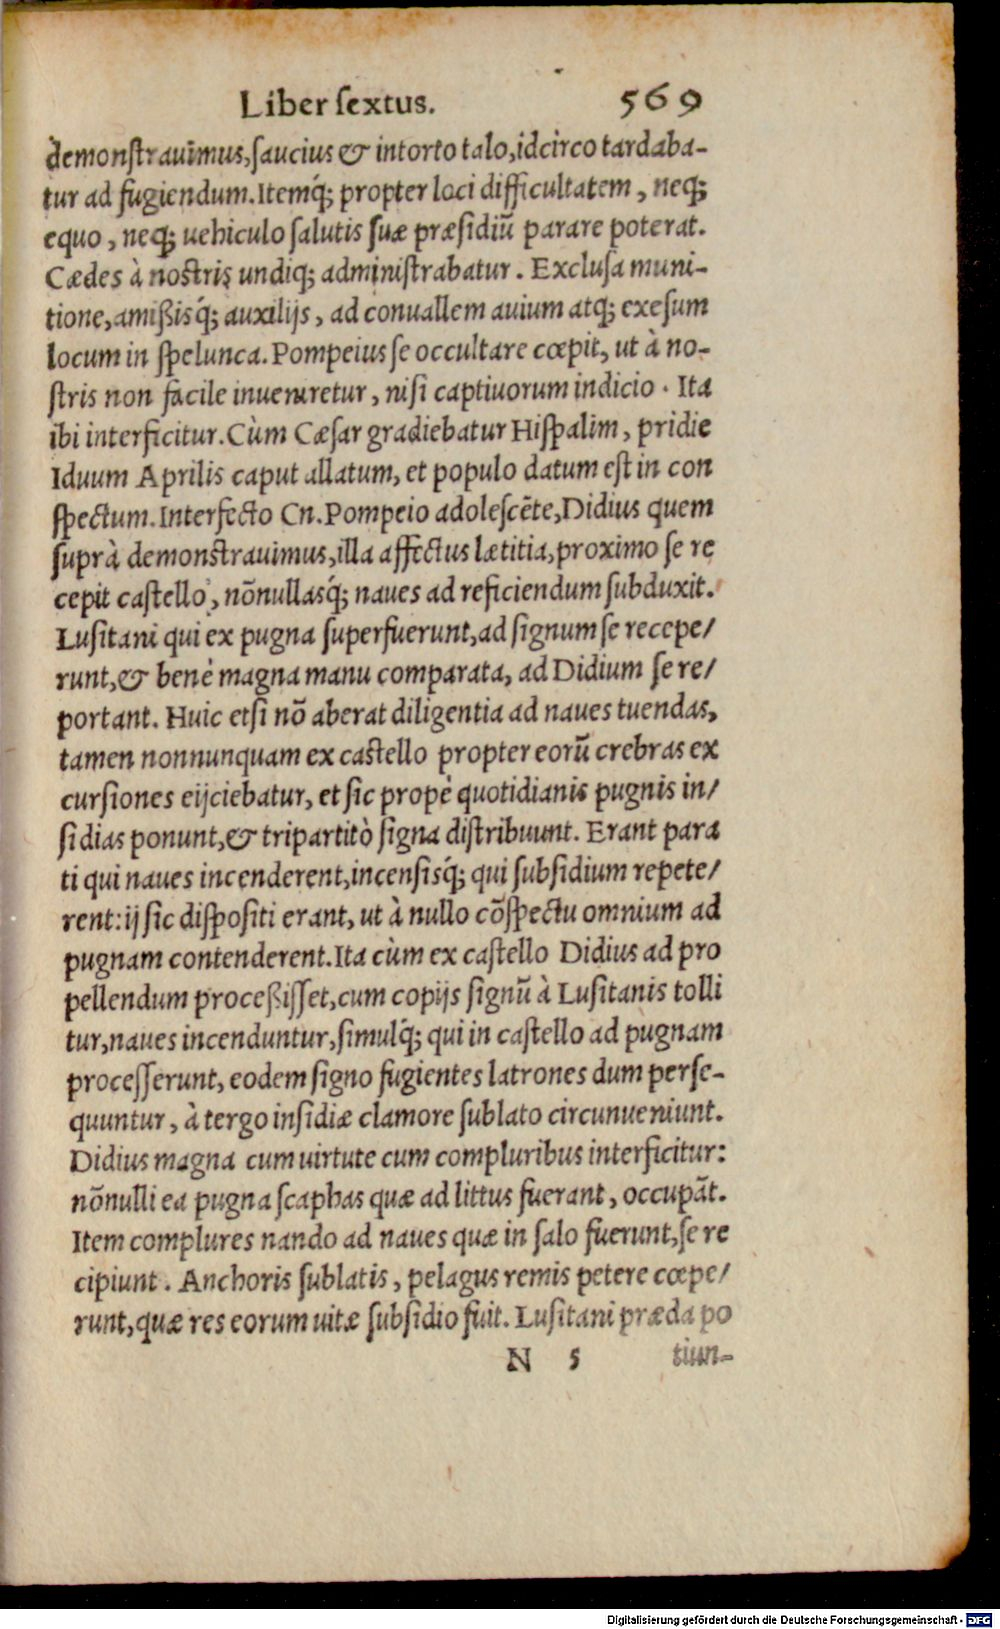 Liber ſextus. 569
demonſtrauimus, ſaucius & intorto talo, idcirco tardaba-
tur ad fugiendum. Itemq́; propter loci difficultatem, neq;
equo, neq; uehiculo ſalutis ſuæ præſidiũ parare poterat.
Cædes à noſtris undiq; adminiſtrabatur. Excluſa muni-
tione, amißisq́; auxilijs, ad conuallem auium atq; exeſum
locum in ſpelunca. Pompeius ſe occultare cœpit, ut à no-
ſtris non facile inueniretur, niſi captiuorum indicio. Ita
ibi interficitur. Cùm Cæſar gradiebatur Hiſpalim, pridie
Iduum Aprilis caput allatum, et populo datum eſt in con
ſpectum. Interfecto Cn. Pompeio adoleſcẽte, Didius quem
ſuprà demonſtrauimus, illa affectus lætitia, proximo ſe re
cepit caſtello, nõnullasq́; naues ad reficiendum ſubduxit.
Luſitani qui ex pugna ſuperfuerunt, ad ſignum ſe recepe/
runt, & benè magna manu comparata, ad Didium ſe re/
portant. Huic etſi nõ aberat diligentia ad naues tuendas,
tamen nonnunquam ex caſtello propter eorũ crebras ex
curſiones eijciebatur, et ſic propè quotidianis pugnis in/
ſidias ponunt, & tripartitò ſigna diſtribuunt. Erant para
ti qui naues incenderent, incenſisq́; qui ſubſidium repete/
rent: ij ſic diſpoſiti erant, ut à nullo cõſpectu omnium ad
pugnam contenderent. Ita cùm ex caſtello Didius ad pro
pellendum proceßiſſet, cum copijs ſignũ à Luſitanis tolli
tur, naues incenduntur, ſimulq́; qui in caſtello ad pugnam
proceſſerunt, eodem ſigno fugientes latrones dum perſe-
quuntur, à tergo inſidiæ clamore ſublato circunueniunt.
Didius magna cum uirtute cum compluribus interficitur:
nõnulli ea pugna ſcaphas quæ ad littus fuerant, occupãt.
Item complures nando ad naues quæ in ſalo fuerunt, ſe re
cipiunt. Anchoris ſublatis, pelagus remis petere cœpe/
runt, quæ res eorum uitæ ſubſidio fuit. Luſitani præda po
N 5 tiun-
Digitalisierung gefördert durch die Deutsche Forschungsgemeinschaft - DFG